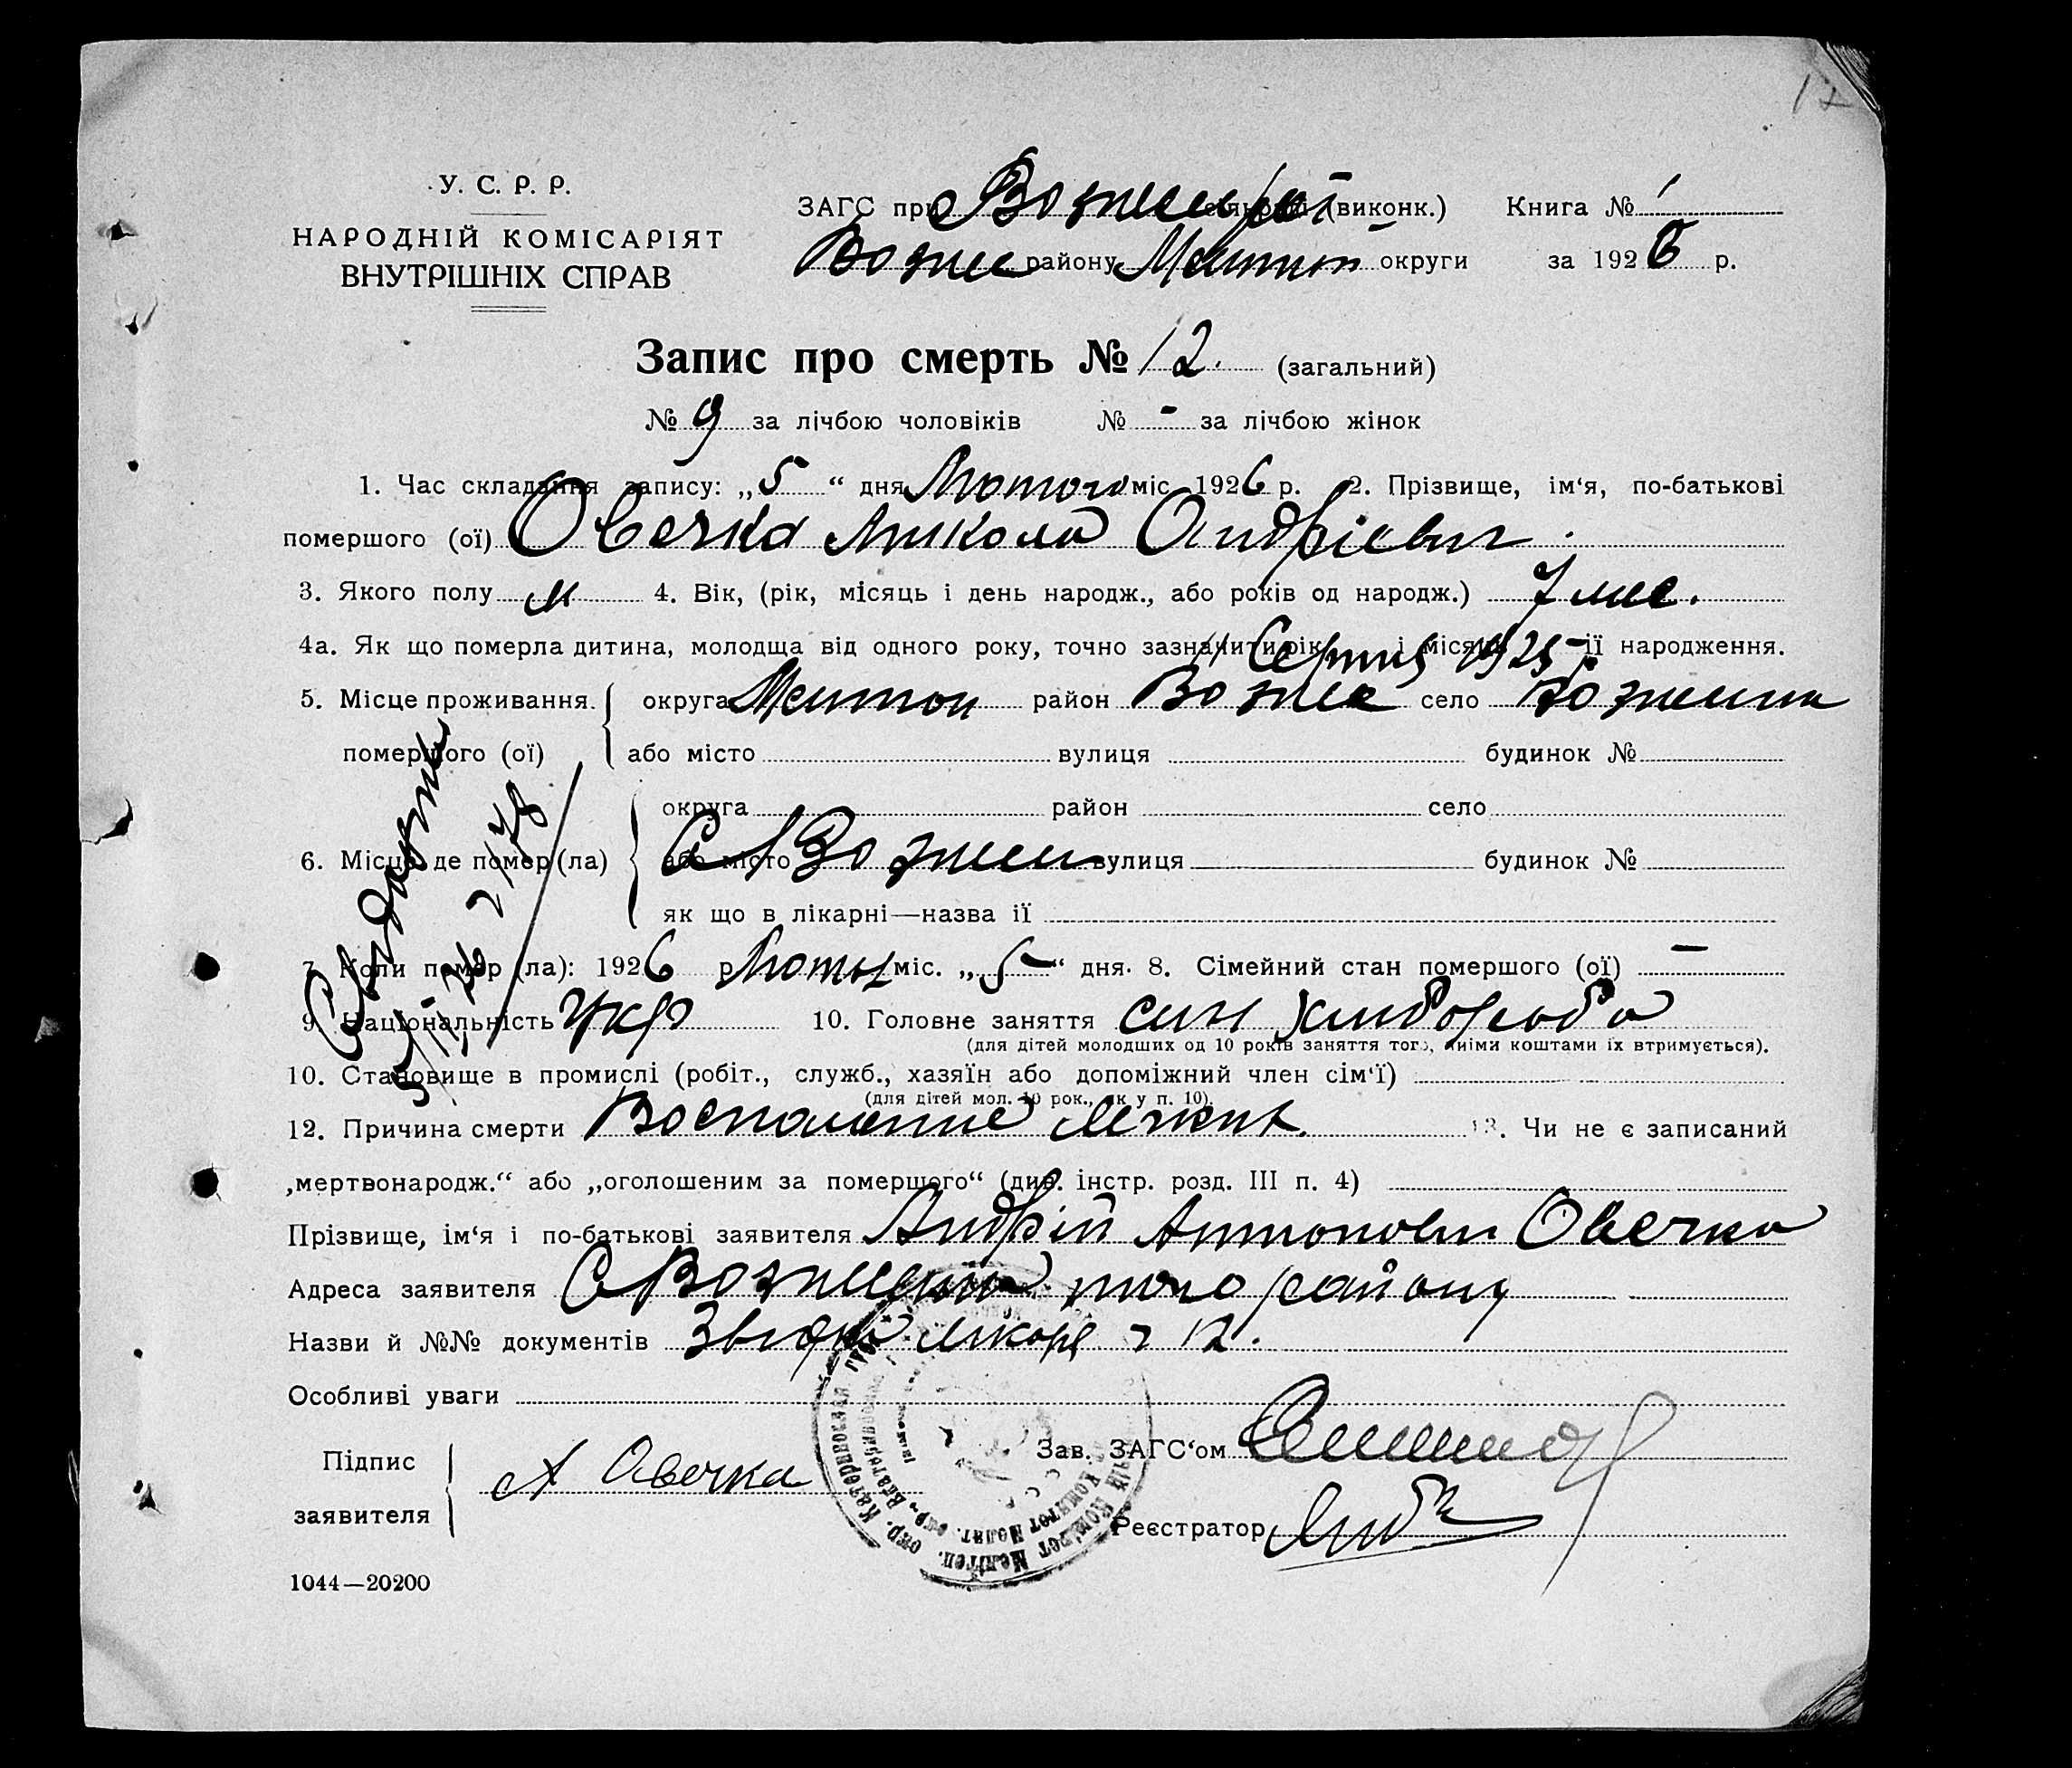 17
У. С. Р. Р.
НАРОДНІЙ КОМІСАРІЯТ
ВНУТРІШНІХ СПРАВ
ЗАГС при (виконк.) Книга № 1
Возне району Меліт округи за 1926 р.
Запис про смерть № 12. (загальний)
№ 9 за лічбою чоловіків № - за лічбою жінок
1. Час складання запису: „5“ дня Лютого міс. 1926 р. 2. Прізвище, ім‘я, по-батькові
помершого (ої) Овечка Микола Андрієвич.
3. Якого полу м 4. Вік, (рік, місяць і день народж., або років од народж.) 7 мес.
4а. Як що померла дитина, молодща від одного року, точно зазначити рік і місяць її народження.
Серпня 1925 р
5. Місце проживання округа Мелітоп район Возне село
помершого (ої) або місто вулиця будинок №
округа район село
6. Місце де помер (ла) або місто вулиця будинок №
С Вознен
як що в лікарні—назва її
7. Коли помер (ла): 1926 р Люты міс. „5“ дня. 8. Сімейний стан помершого (ої) —
9. Національність Укр 10. Головне заняття син хлибороба
(для дітей молодших од 10 років заняття того, чиїми коштами їх втримується).
10. Становище в промислі (робіт., служб., хазяїн або допоміжний член сім‘ї)
(для дітей мол. 10 рок., як у п. 10).
12. Причина смерти Воспаление легких. 13. Чи не є записаний
„мертвонародж.“ або „оголошеним за померщого“ (див. інстр. розд. III п. 4)
Прізвище, ім‘я і по-батькові заявителя Андрій Антонович Овечка
Адреса заявителя С Вознена того району
Назви й №№ документів Звідка лікаря 12.
Особливі уваги
Підпис
заявителя
А Овечка
Зав. ЗАГС‘ом
Реєстратор
1044—20200